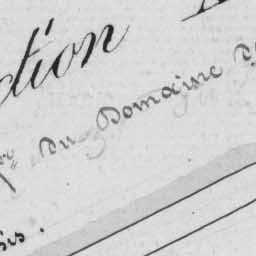 ction
du Domaine
sis.